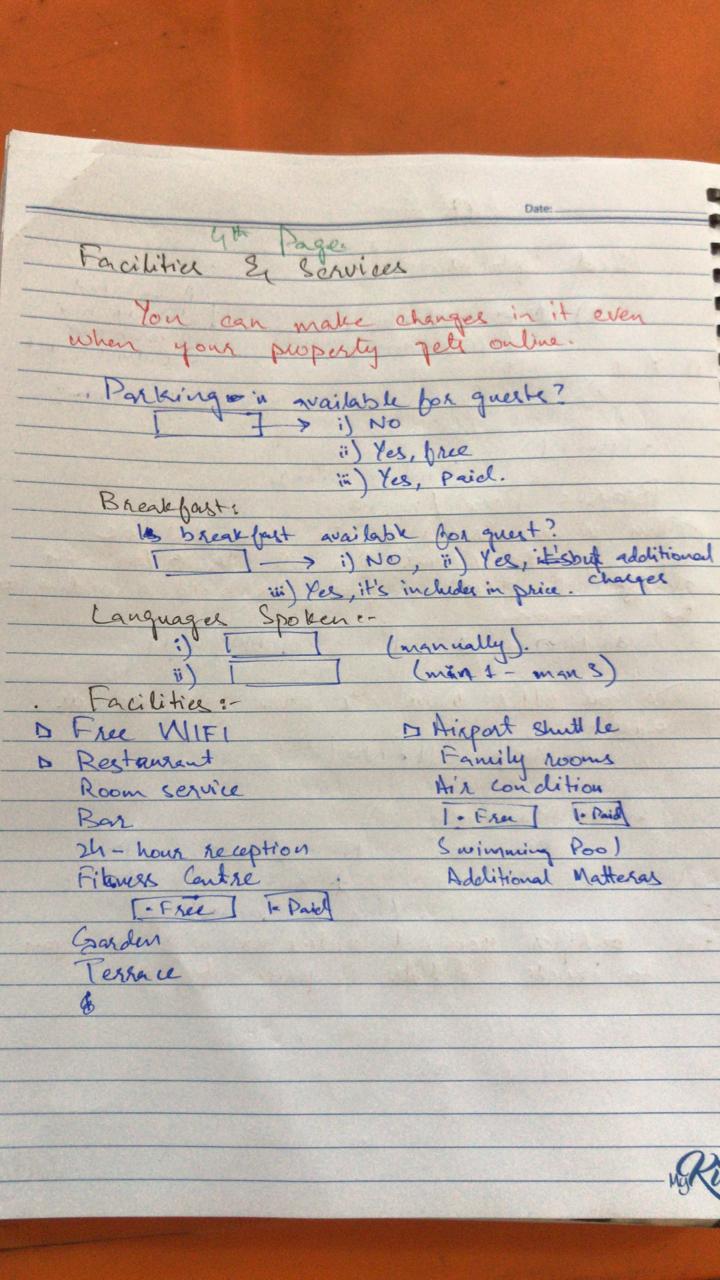 Date:
4th Page
Facilities & Services
You can make changes in it even
when your property gets online.
Parking is available for guests?
→ i) NO
ii) Yes, free
iii) Yes, Paid.
Breakfast:
Is breakfast available for guest?
→ i) NO, ii) Yes, but additional
charges
iii) Yes, it's includes in price.
Languages Spoken:-
i) (manually).
ii) (min 1 - max 3)
Facilities:-
Free WIFI
Restaurant
Room service
Bar
24-hour reception
Fitness Centre
Free Paid
Garden
Terrace
Airport shuttle
Family rooms
Air condition
Free Paid
Swimming Pool
Additional Matteras
My